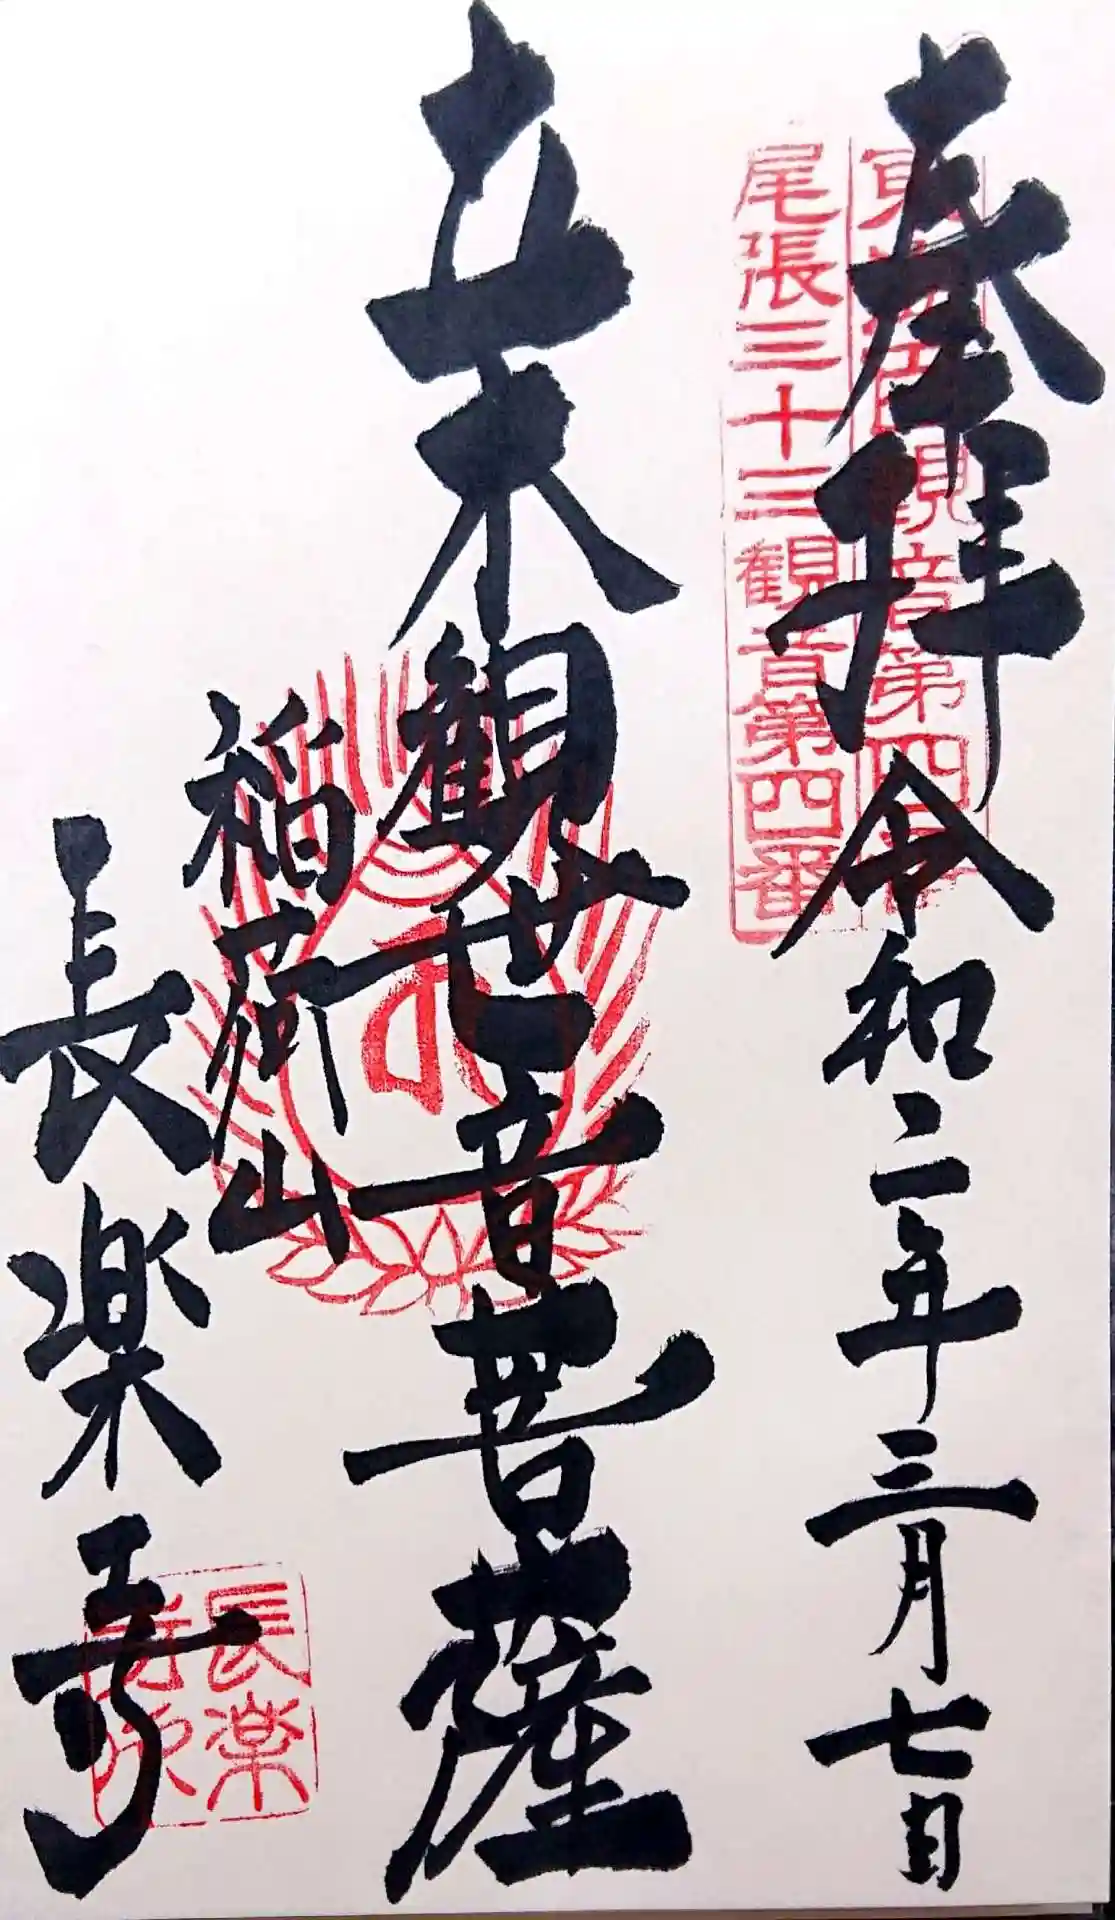 奉拝 令和二年三月七日
観音第四番
尾張三十三観音第四番
観世音菩薩
稲荷山
長楽寺
長楽
寺印